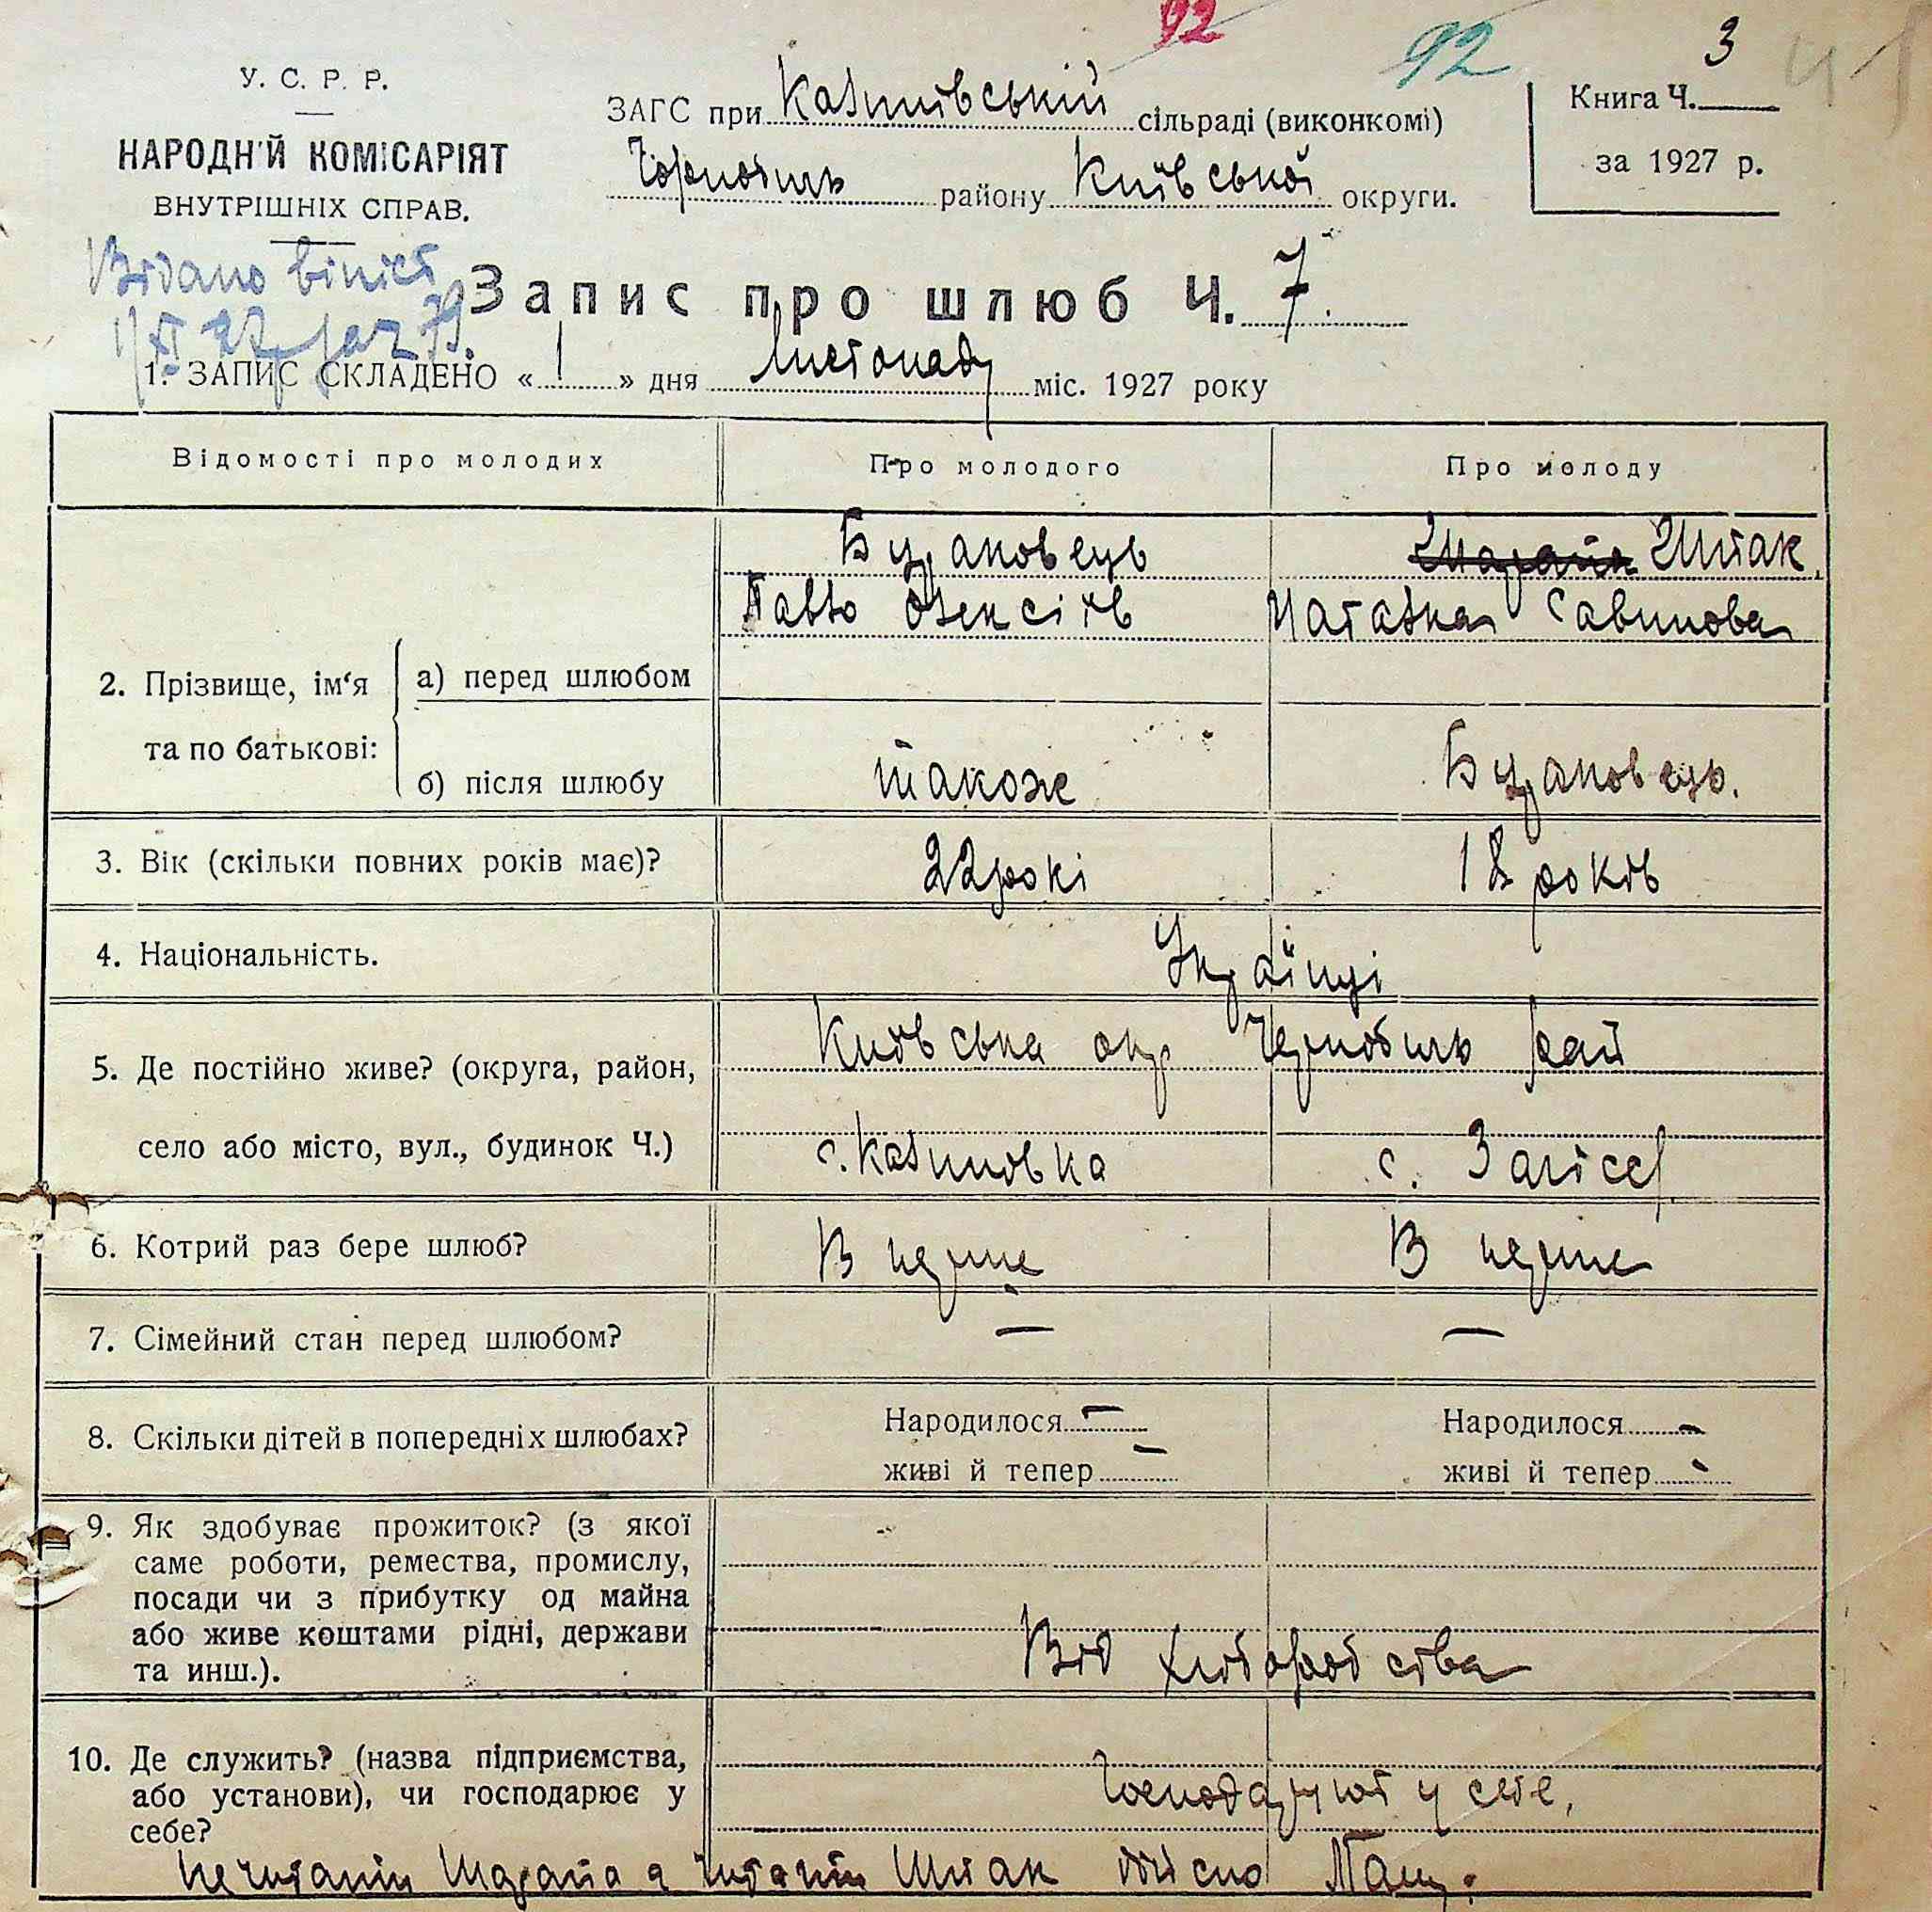 92
92
3
41
У. С. Р. Р.
НАРОДНИЙ КОМІСАРІЯТ
ВНУТРІШНІХ СПРАВ.
ЗАГС при Калинівській сільраді (виконкомі)
Чорнобиль району Київської округи.
Книга Ч.
за 1927 р.
Видано
Запис про шлюб Ч. 7
1. ЗАПИС СКЛАДЕНО « 1 » дня Листопаду міс. 1927 року
Відомості про молодих Про молодого Про молоду
Бурановець Шпак
Павло Олексіїв Наталка Савинова
2. Прізвище, ім'я та по батькові:
а) перед шлюбом
б) після шлюбу також Бурановець.
3. Вік (скільки повних років має)? 22 рокі 18 років
4. Національність. Українці
5. Де постійно живе? (округа, район, село або місто, вул., будинок Ч.)
Київська окр Чернобиль рай
с. Калиновка с. Залісся
6. Котрий раз бере шлюб? В перше В перше
7. Сімейний стан перед шлюбом? — —
8. Скільки дітей в попередніх шлюбах? Народилося — Народилося —
живі й тепер — живі й тепер -
9. Як здобуває прожиток? (з якої
саме роботи, ремества, промислу,
посади чи з прибутку од майна
або живе коштами рідні, держави
та инш.). Від хліборобства
10. Де служить? (назва підприємства,
або установи), чи господарює у
себе? Господарюют у себе,
не читати а читати Шпак дійсно